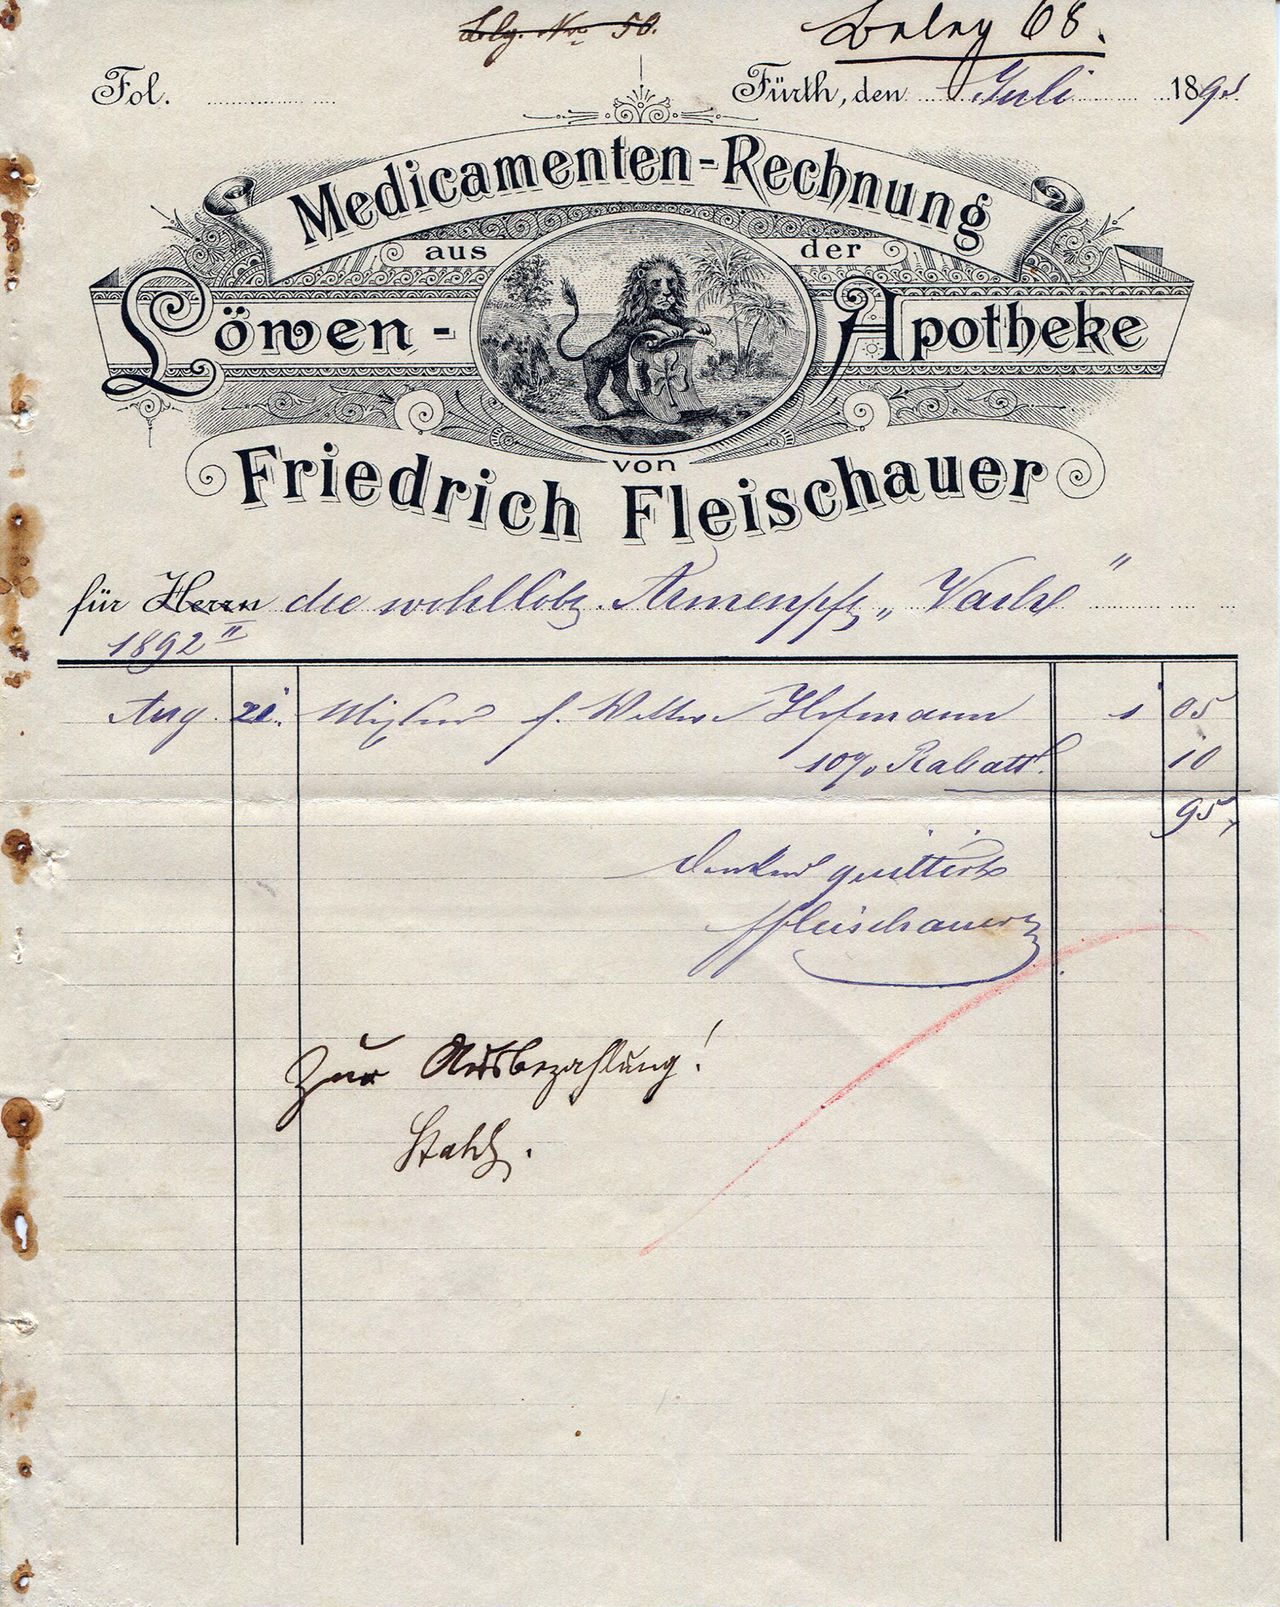 Blg. Nr. 50.
Beleg 68.
Fol.
Fürth, den Juli 189
Medicamenten-Rechnung
aus der
Löwen-Apotheke
von
Friedrich Fleischauer
für Herrn die wohllöbl. Armenpflg „Vach"
1892 II
Aug. 21. f. Hofmann 1 05
10% Rabatt. 10
95
dankend quittirt
FFleischauer
Zur Ausbezahlung!
Stahl.